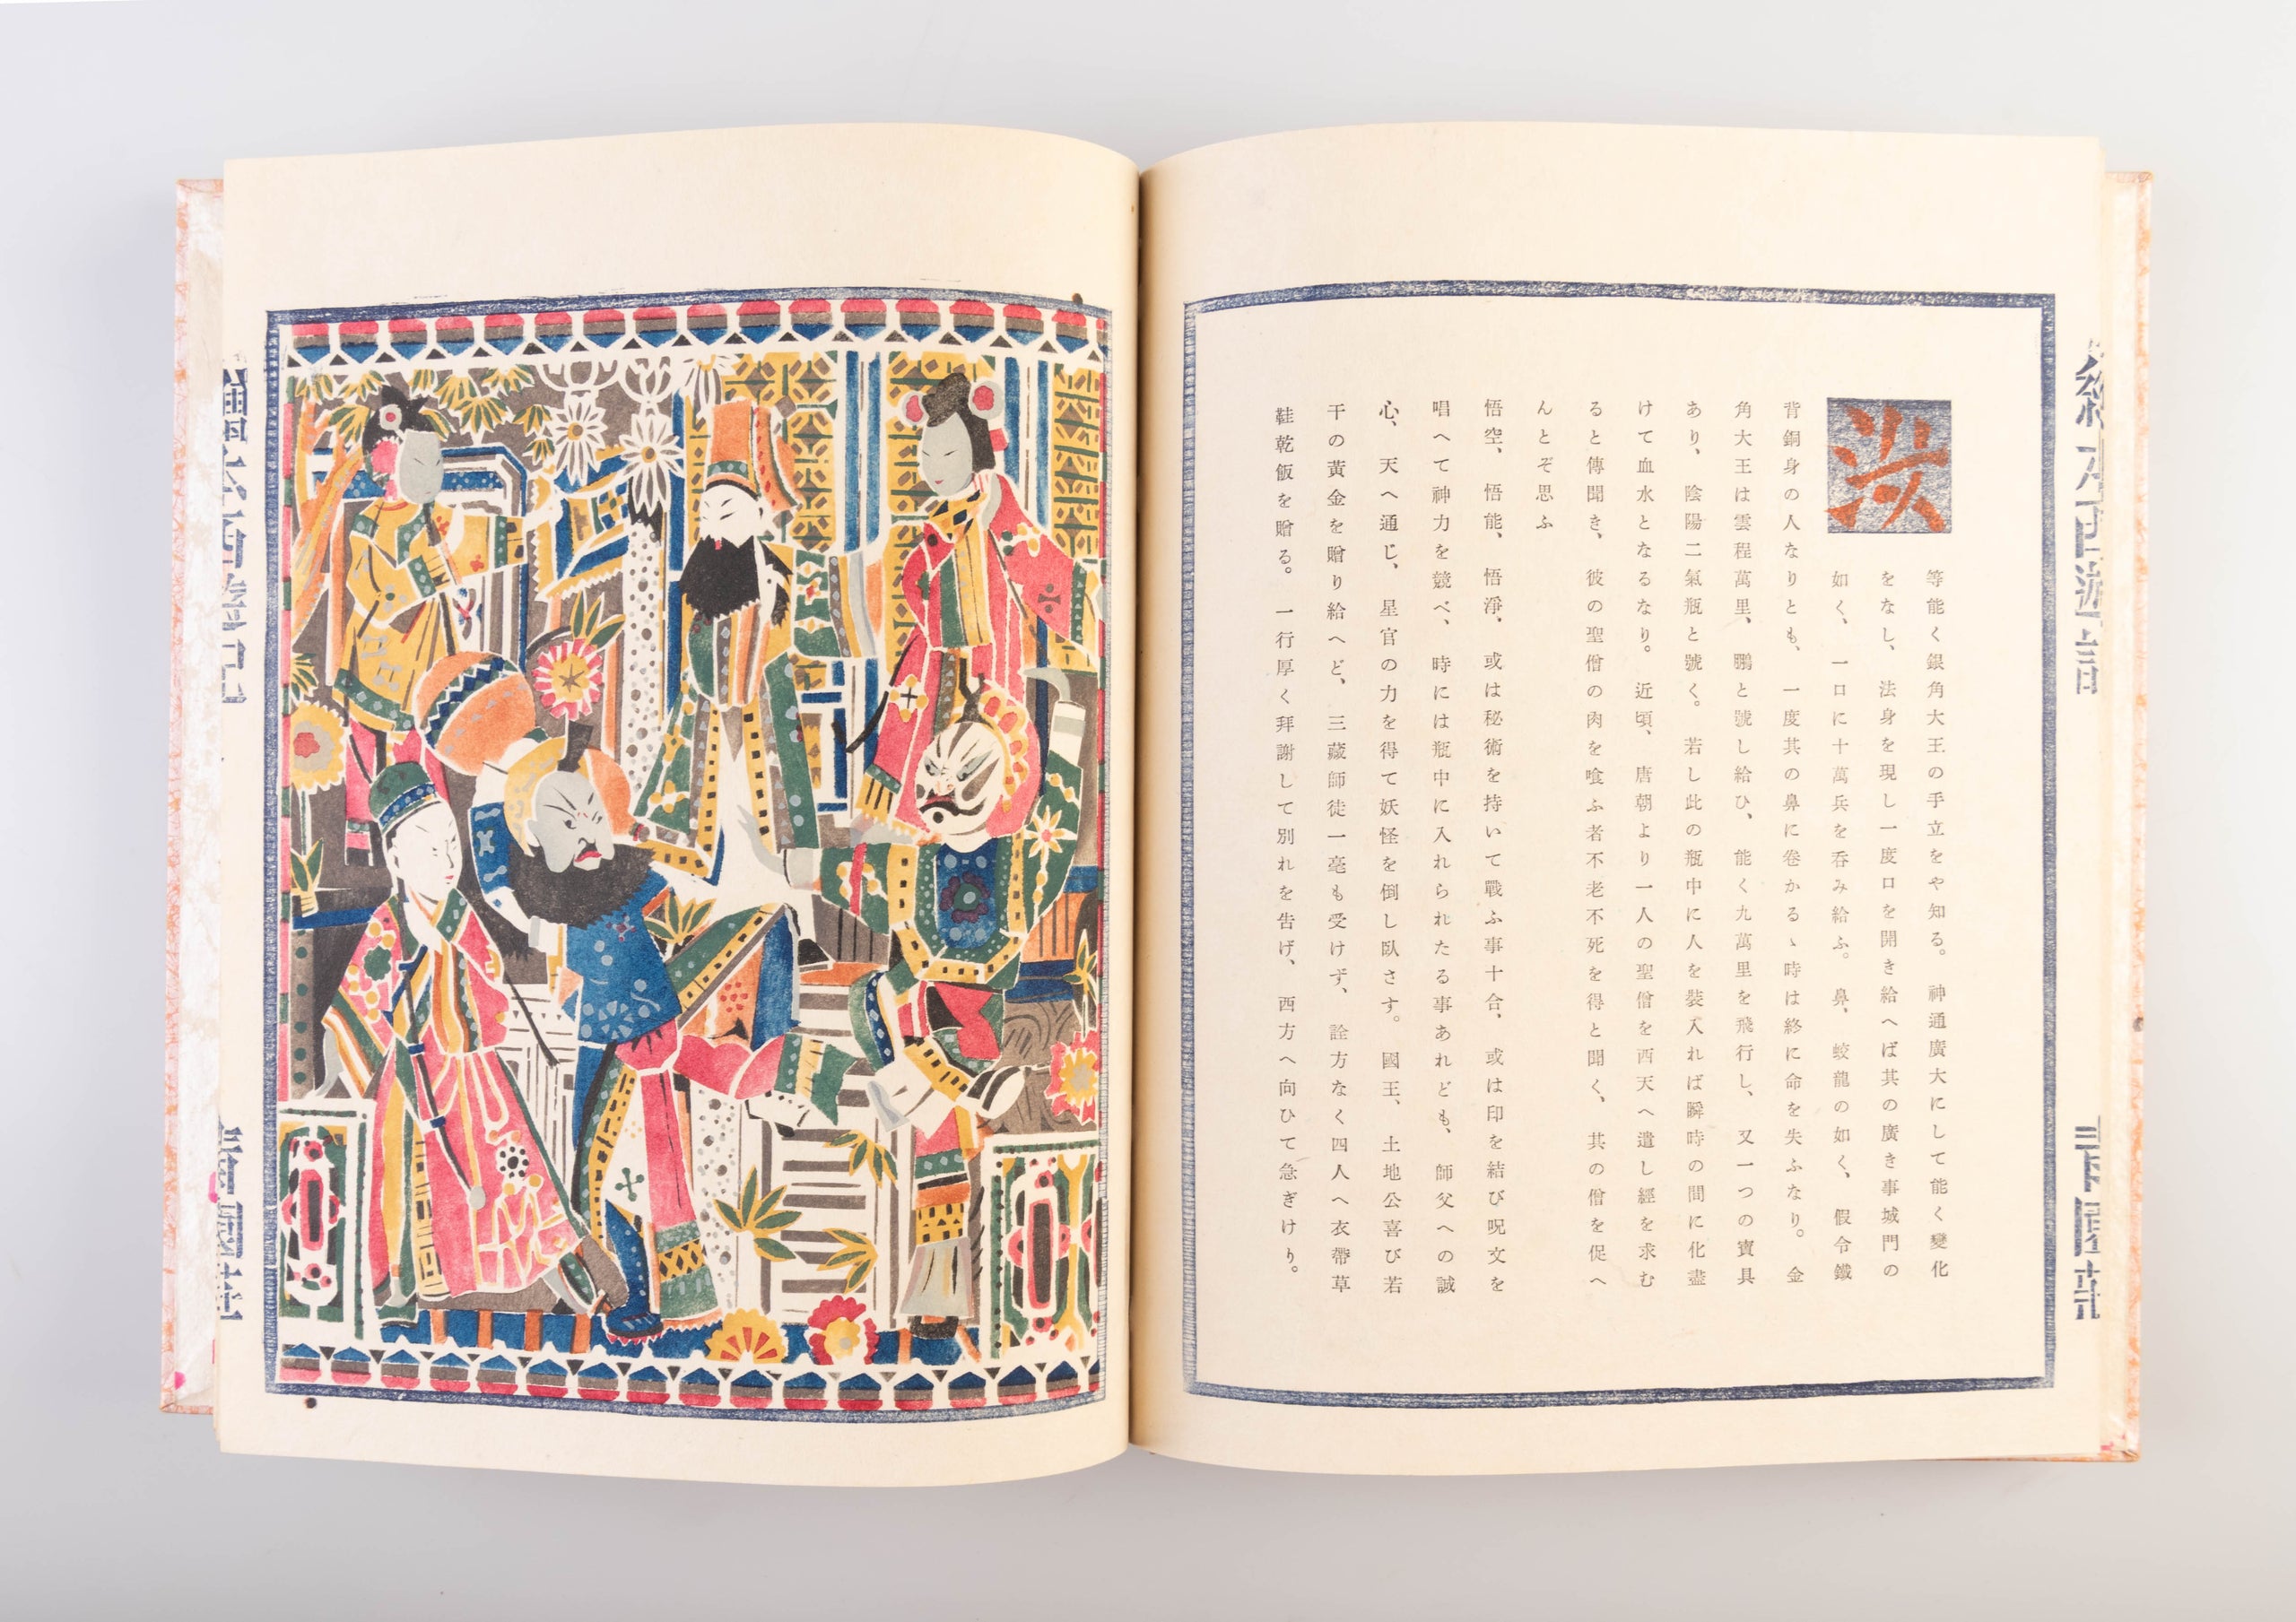 汝
等能く銀角大王の手立をや知る。神通廣大にして能く變化
をなし、法身を現し一度口を開き給へば其の廣き事城門の
如く、一口に十萬兵を呑み給ふ。鼻、蛟龍の如く、假令鐵
背銅身の人なりとも、一度其の鼻に卷かるゝ時は終に命を失ふなり。金
角大王は雲程萬里、鵬と號し給ひ、能く九萬里を飛行し、又一つの寶具
あり、陰陽二氣瓶と號く。若し此の瓶中に人を裝入れば瞬時の間に化盡
けて血水となるなり。近頃、唐朝より一人の聖僧を西天へ遣し經を求む
ると傳聞き、彼の聖僧の肉を喰ふ者不老不死を得と聞く、其の僧を促へ
んとぞ思ふ
悟空、悟能、悟淨、或は秘術を持いて戰ふ事十合、或は印を結び呪文を
唱へて神力を競べ、時には瓶中に入れられたる事あれども、師父への誠
心、天へ通じ、星官の力を得て妖怪を倒し臥さす。國王、土地公喜び若
干の黃金を贈り給へど、三藏師徒一毫も受けず、詮方なく四人へ衣帶草
鞋乾飯を贈る。一行厚く拜謝して別れを告げ、西方へ向ひて急ぎけり。